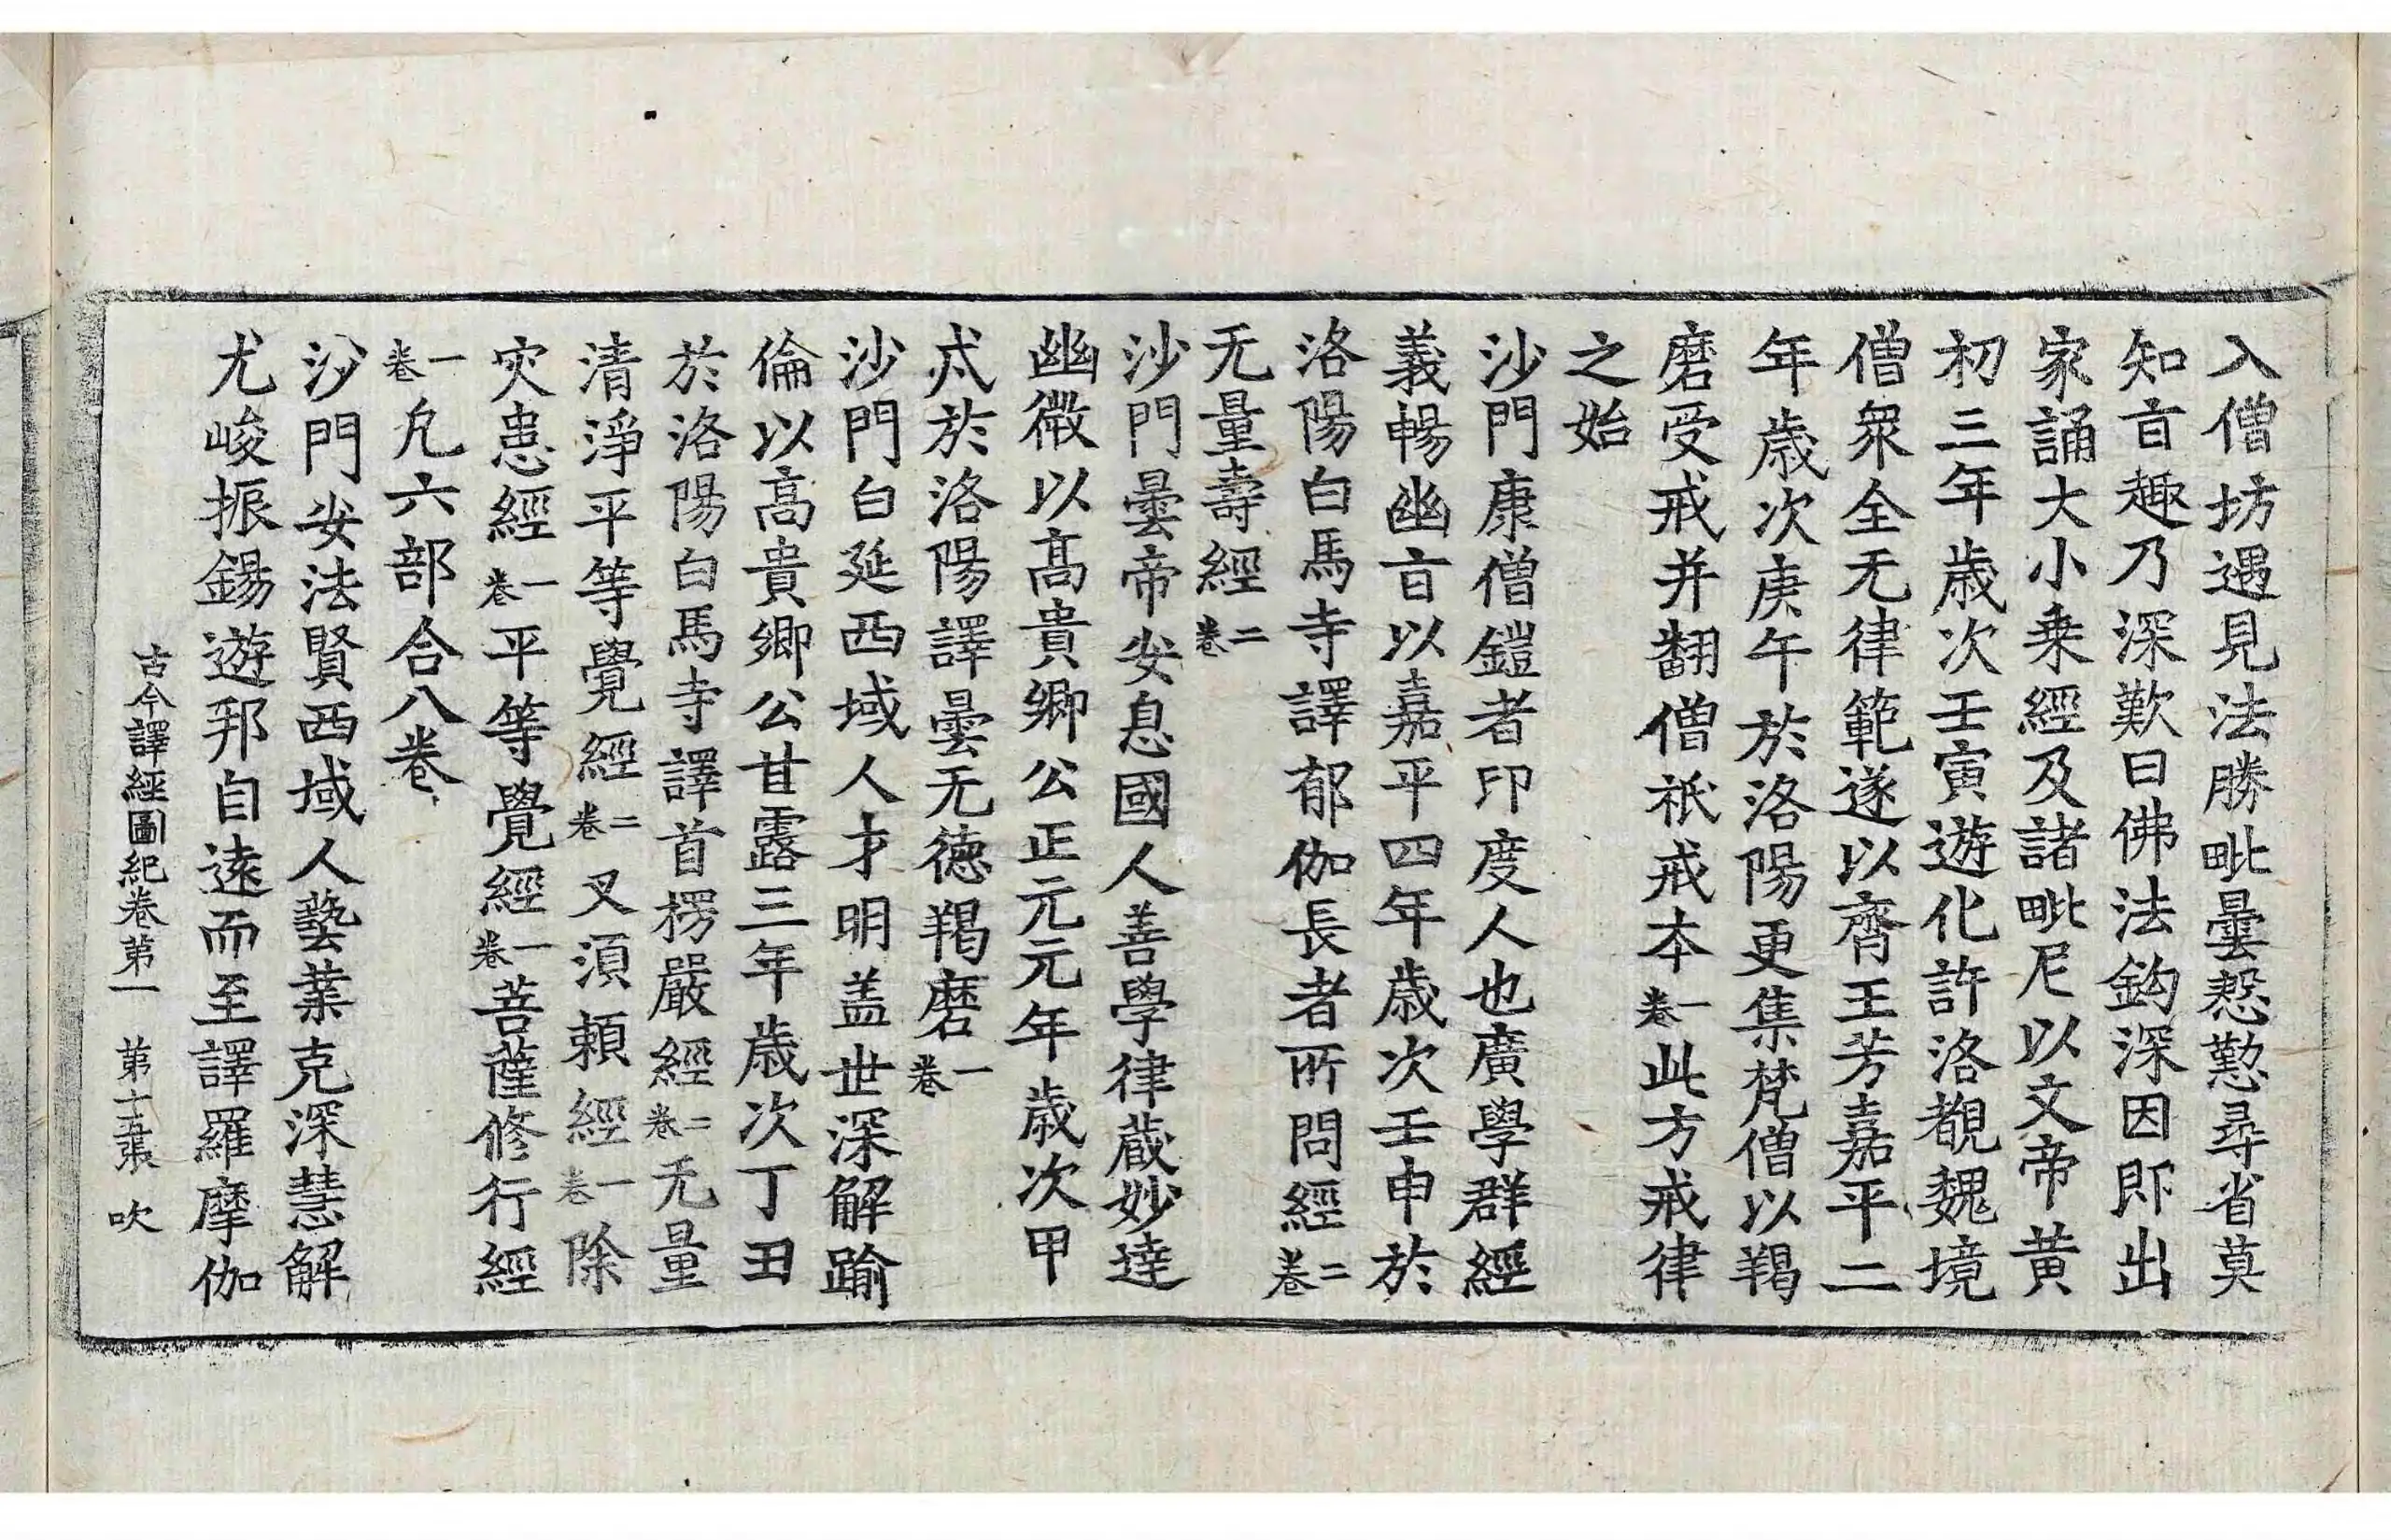 入僧坊遇見法勝毗曇慇懃尋省莫
知㫖趣乃深歎曰佛法鈎深因即出
家誦大小乗經及諸毗尼以文帝黄
初三年歲次壬寅遊化許洛覩魏境
僧衆全无律範遂以齊王芳嘉平二
年歲次庚午於洛陽更集梵僧以羯
磨受戒并翻僧祇戒本一卷此方戒律
之始
沙門康僧鎧者印度人也廣學群經
義暢幽㫖以嘉平四年歲次壬申於
洛陽白馬寺譯郁伽長者所問經二卷
无量壽經二卷
沙門曇帝安息國人善學律蔵妙達
幽微以髙貴鄉公正元元年歲次甲
戌於洛陽譯曇无德羯磨一卷
沙門白延西域人才明盖世深解踰
倫以髙貴鄉公甘露三年歲次丁丑
於洛陽白馬寺譯首楞嚴經二卷无量
清淨平等覺經二卷叉湏頼經一卷除
灾患經一卷平等覺經一卷菩薩修行經
一卷凢六部合八卷
沙門安法賢西域人藝業克深慧解
尤峻振錫遊邦自逺而至譯羅摩伽
古今譯經圖紀卷第一 第十五張 吹